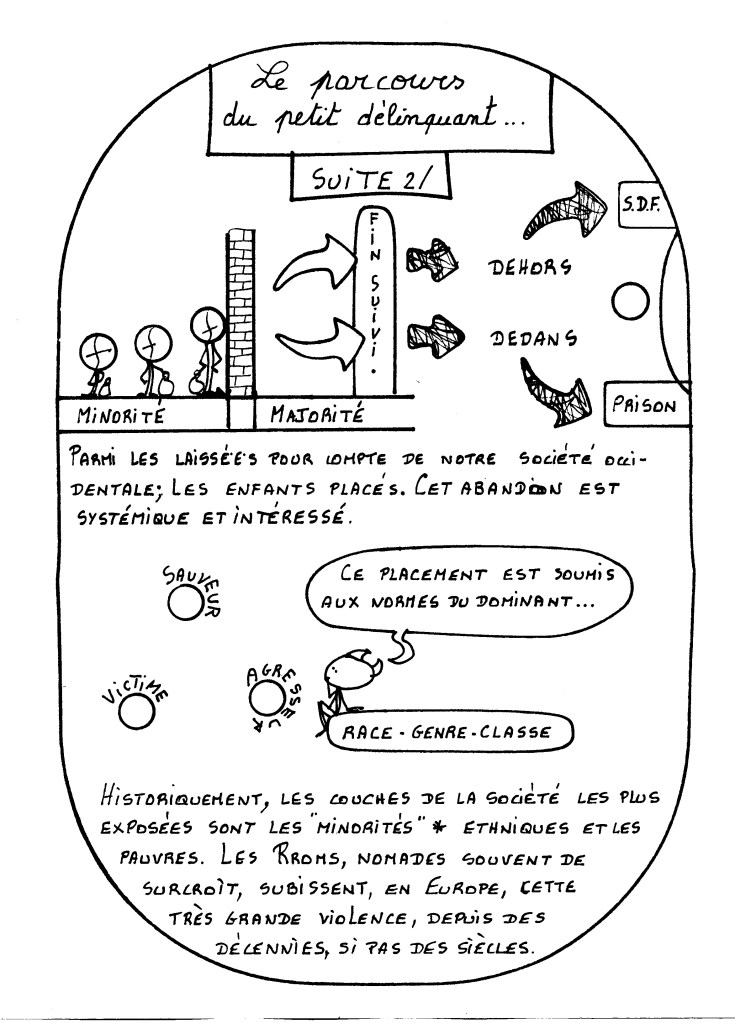 Le parcours
du petit délinquant...
SUITE 2/
FIN SUIVI.
S.D.F.
DEHORS
DEDANS
PRISON
MINORITÉ
MAJORITÉ
PARMI LES LAISSÉ.E.S POUR COMPTE DE NOTRE SOCIÉTÉ OCCI-
DENTALE; LES ENFANTS PLACÉS. CET ABANDON EST
SYSTÉMIQUE ET INTÉRESSÉ.
SAUVEUR
CE PLACEMENT EST SOUMIS
AUX NORMES DU DOMINANT...
VICTIME
AGRESSEUR
RACE - GENRE - CLASSE
HISTORIQUEMENT, LES COUCHES DE LA SOCIÉTÉ LES PLUS
EXPOSÉES SONT LES "MINORITÉS" * ETHNIQUES ET LES
PAUVRES. LES RROMS, NOMADES SOUVENT DE
SURCROÎT, SUBISSENT, EN EUROPE, CETTE
TRÈS GRANDE VIOLENCE, DEPUIS DES
DÉCENNIES, SI PAS DES SIÈCLES.